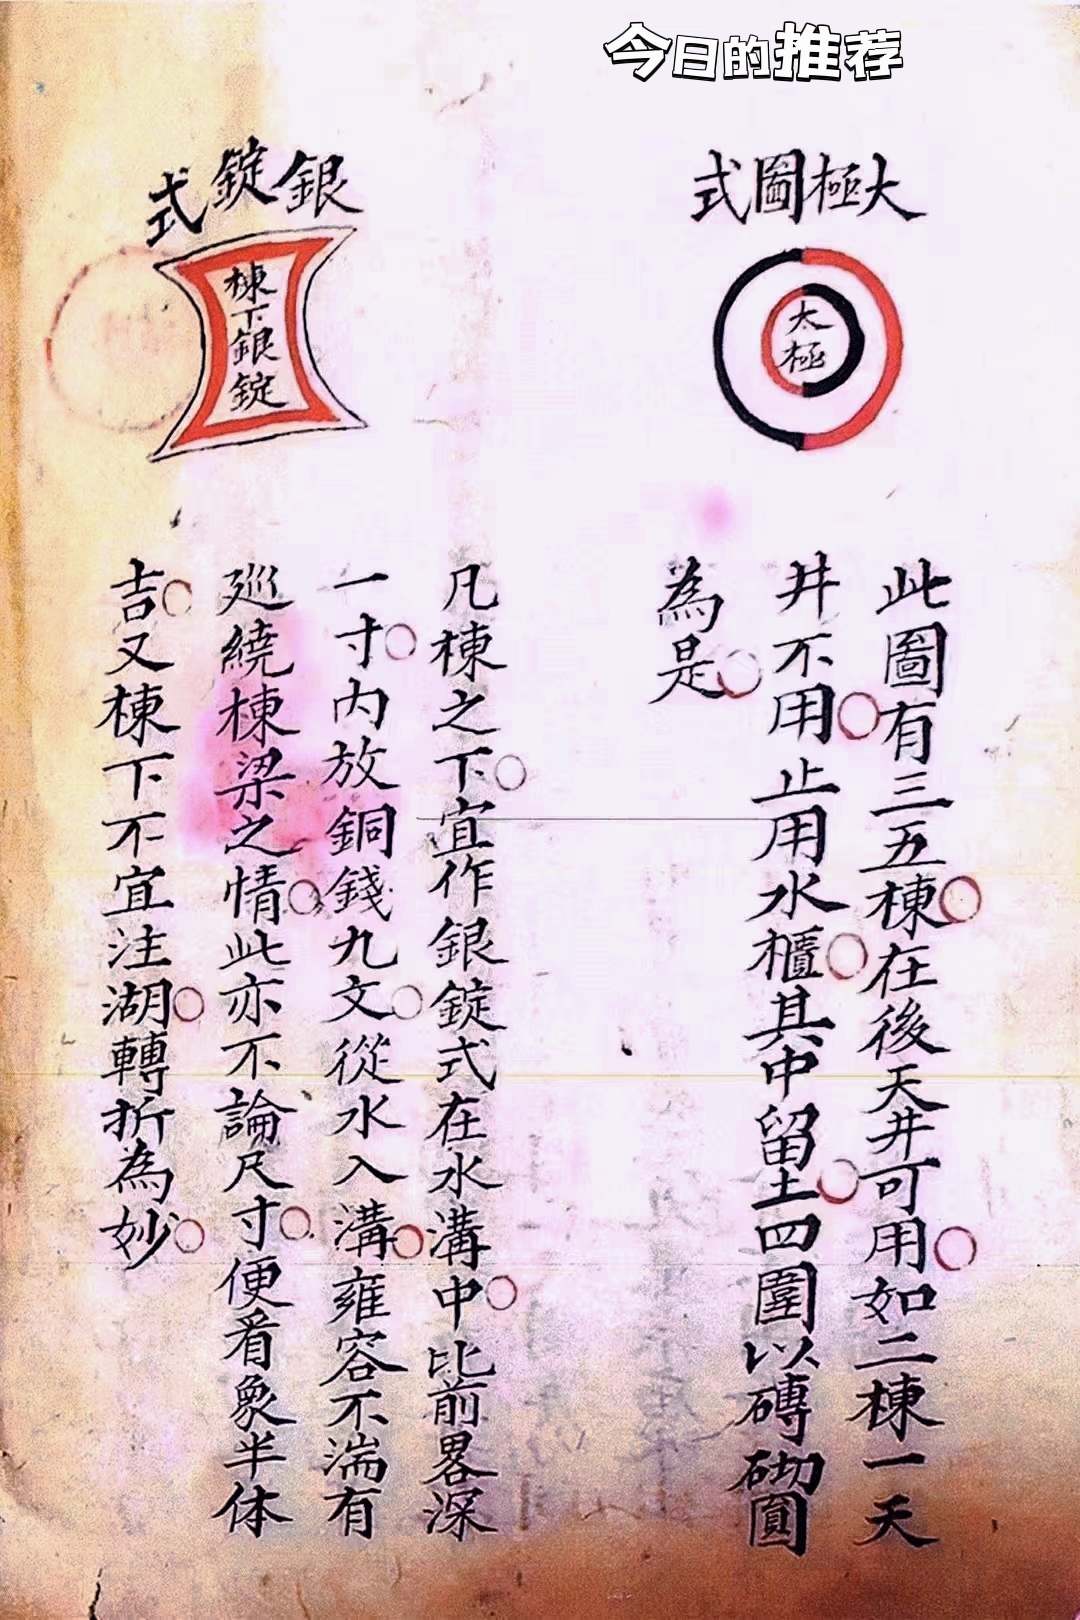 今日的推荐
大極圖式
太極
此圖有三五棟在後天井可用如二棟一天
井不用止用水櫃其中留土四圍以磚砌圓
為是
銀錠式
棟下銀錠
凡棟之下宜作銀錠式在水溝中比前畧深
一寸內放銅錢九文從水入溝雍容不湍有
廵繞棟梁之情此亦不論尺寸便看象半体
吉又棟下不宜注湖轉折為妙